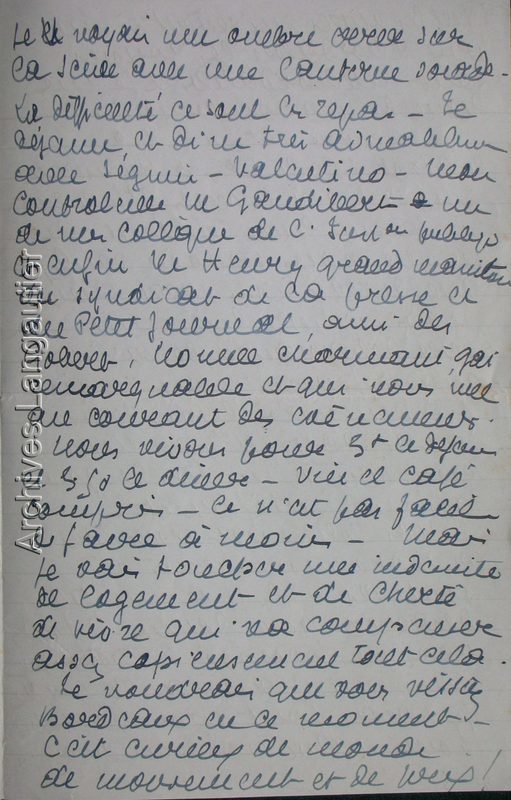 Je voyais une ombre errer sur
la scène avec une lanterne sourde -
La difficulté ce sont les repas - Je
déjeune et dîne très aimablement
avec Séguin - Valentino - mon
controleur M Gaudibert - un
de mes collègue de
et enfin M Henry grand manitou
du syndicat de la presse et
du Petit Journal, ami des
homme charmant, gai
remarquable et qui nous met
au courant des événements.
Nous vivons pour 3f le déjeuner
et 3,50 le dîner - vin et café
compris - Ce n'est pas facile
de faire à moins - Mais
je vais toucher une indemnité
de logement et de cherté
de vivre qui va compenser
assez copieusement tout cela.
Je voudrais que vous vissiez
Bordeaux en ce moment -
C'est curieux de monde
de mouvement et de
Archives Langautier